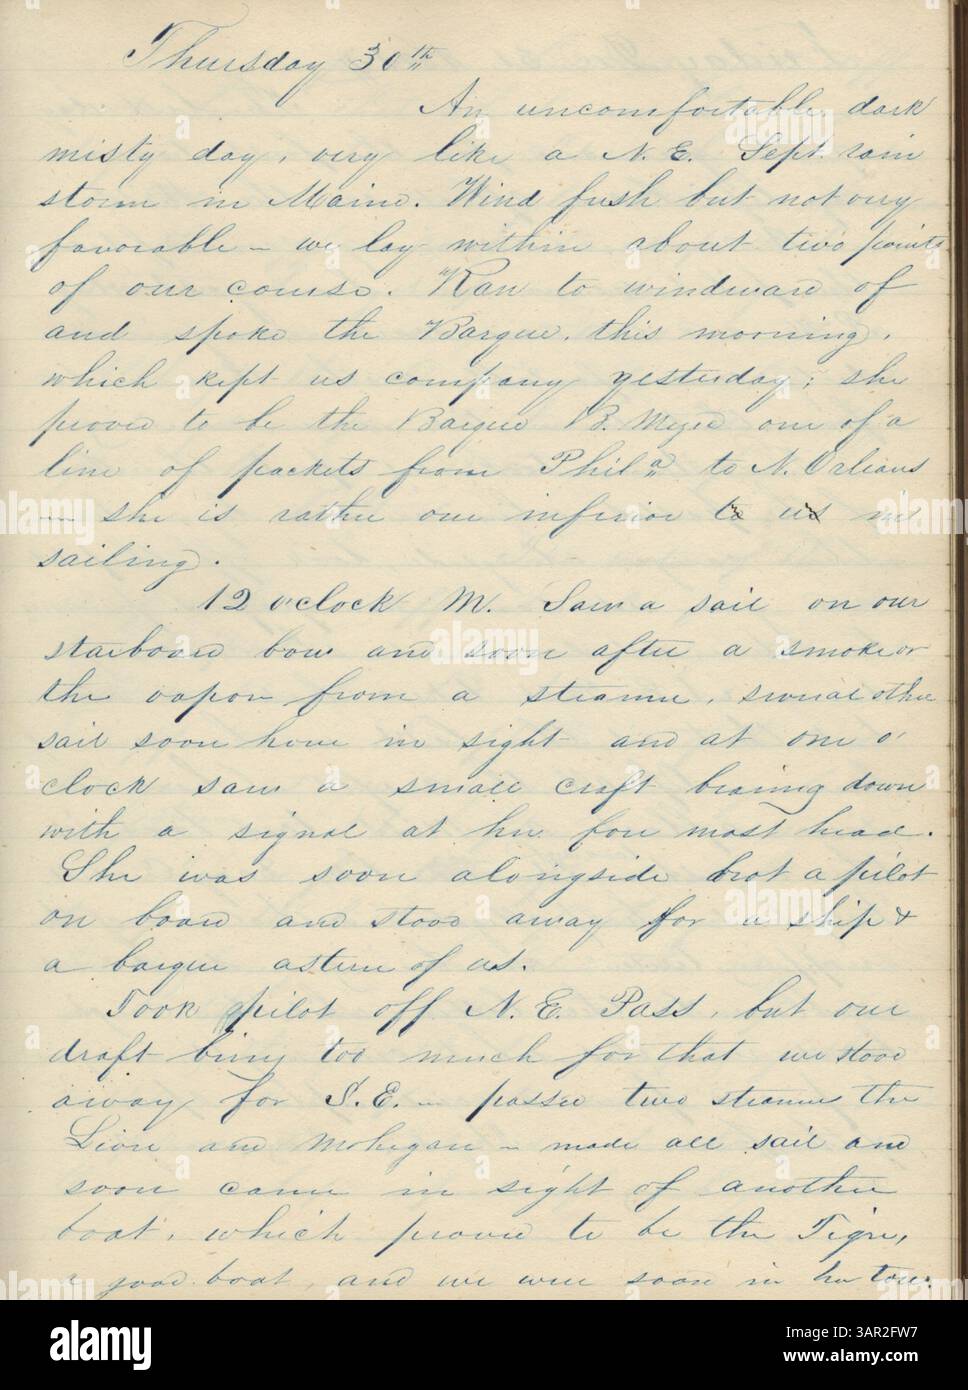 Thursday 30th
An uncomfortable dark
misty day, very like a N. E. Sept. rain
storm in Maine. Wind fresh but not very
favorable – we lay within about two points
of our course. Ran to windward of
and spoke the Barque, this morning,
which kept us company yesterday; she
proved to be the Barque B. one of a
line of packets from Phila to N. Orleans
— she is rather our inferior to us in
sailing.
12 o'clock M. Saw a sail on our
starboard bow and soon after a smoke or
the vapor from a steamer, several other
sail soon hove in sight and at one o'
clock saw a small craft bearing down
with a signal at her fore mast head.
She was soon alongside brot a pilot
on board and stood away for a ship &
a barque astern of us.
Took pilot off N. E. Pass, but our
draft being too much for that we stood
away for S.E. – passed two steamers the
Lion and Mohegan – made all sail and
soon came in sight of another
boat, which proved to be the Tigre,
a good boat, and we were soon in her tow.
alamy
a
alamy
Image ID: 3AR2FW7
www.alamy.com